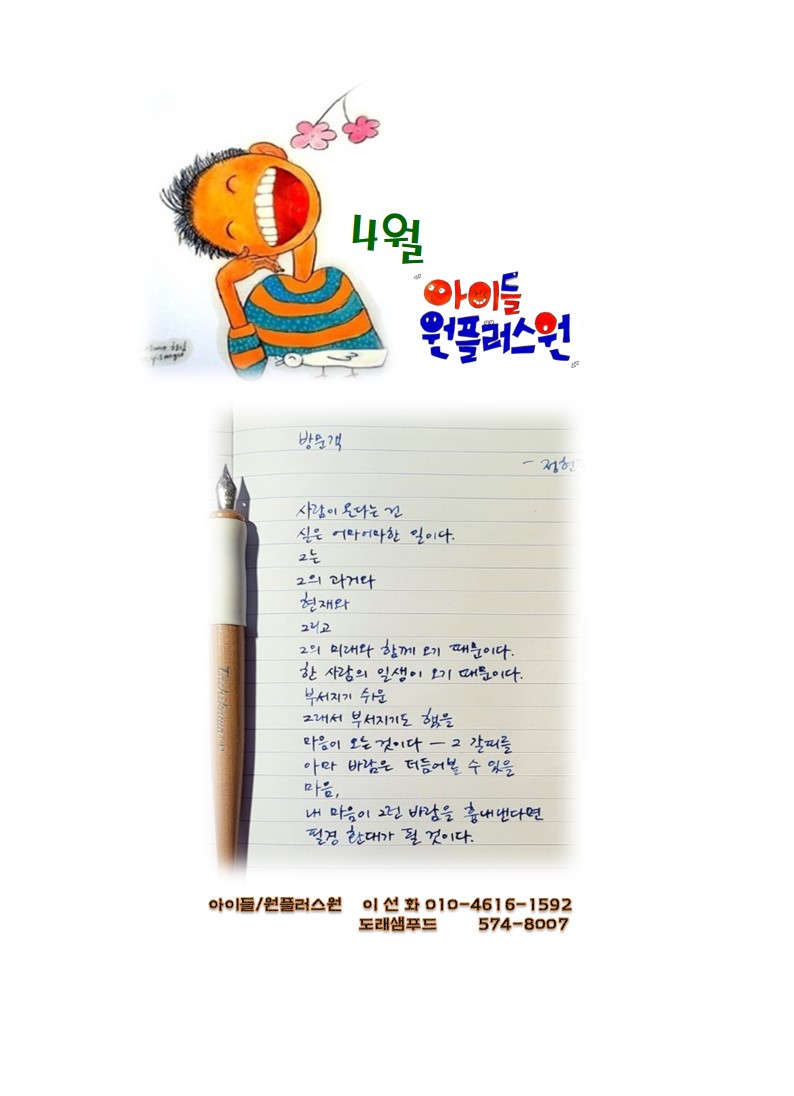 4월
아이들
원플러스원
방문객
- 정현
사람이 온다는 건
실은 어마어마한 일이다.
그는
그의 과거와
현재와
그리고
그의 미래와 함께 오기 때문이다.
한 사람의 일생이 오기 때문이다.
부서지기 쉬운
그래서 부서지기도 했을
마음이 오는 것이다 — 그 갈피를
아마 바람은 더듬어볼 수 있을
마음,
내 마음이 그런 바람을 흉내낸다면
필경 환대가 될 것이다.
아이들/원플러스원 이 선 화 010-4616-1592
도래샘푸드 574-8007